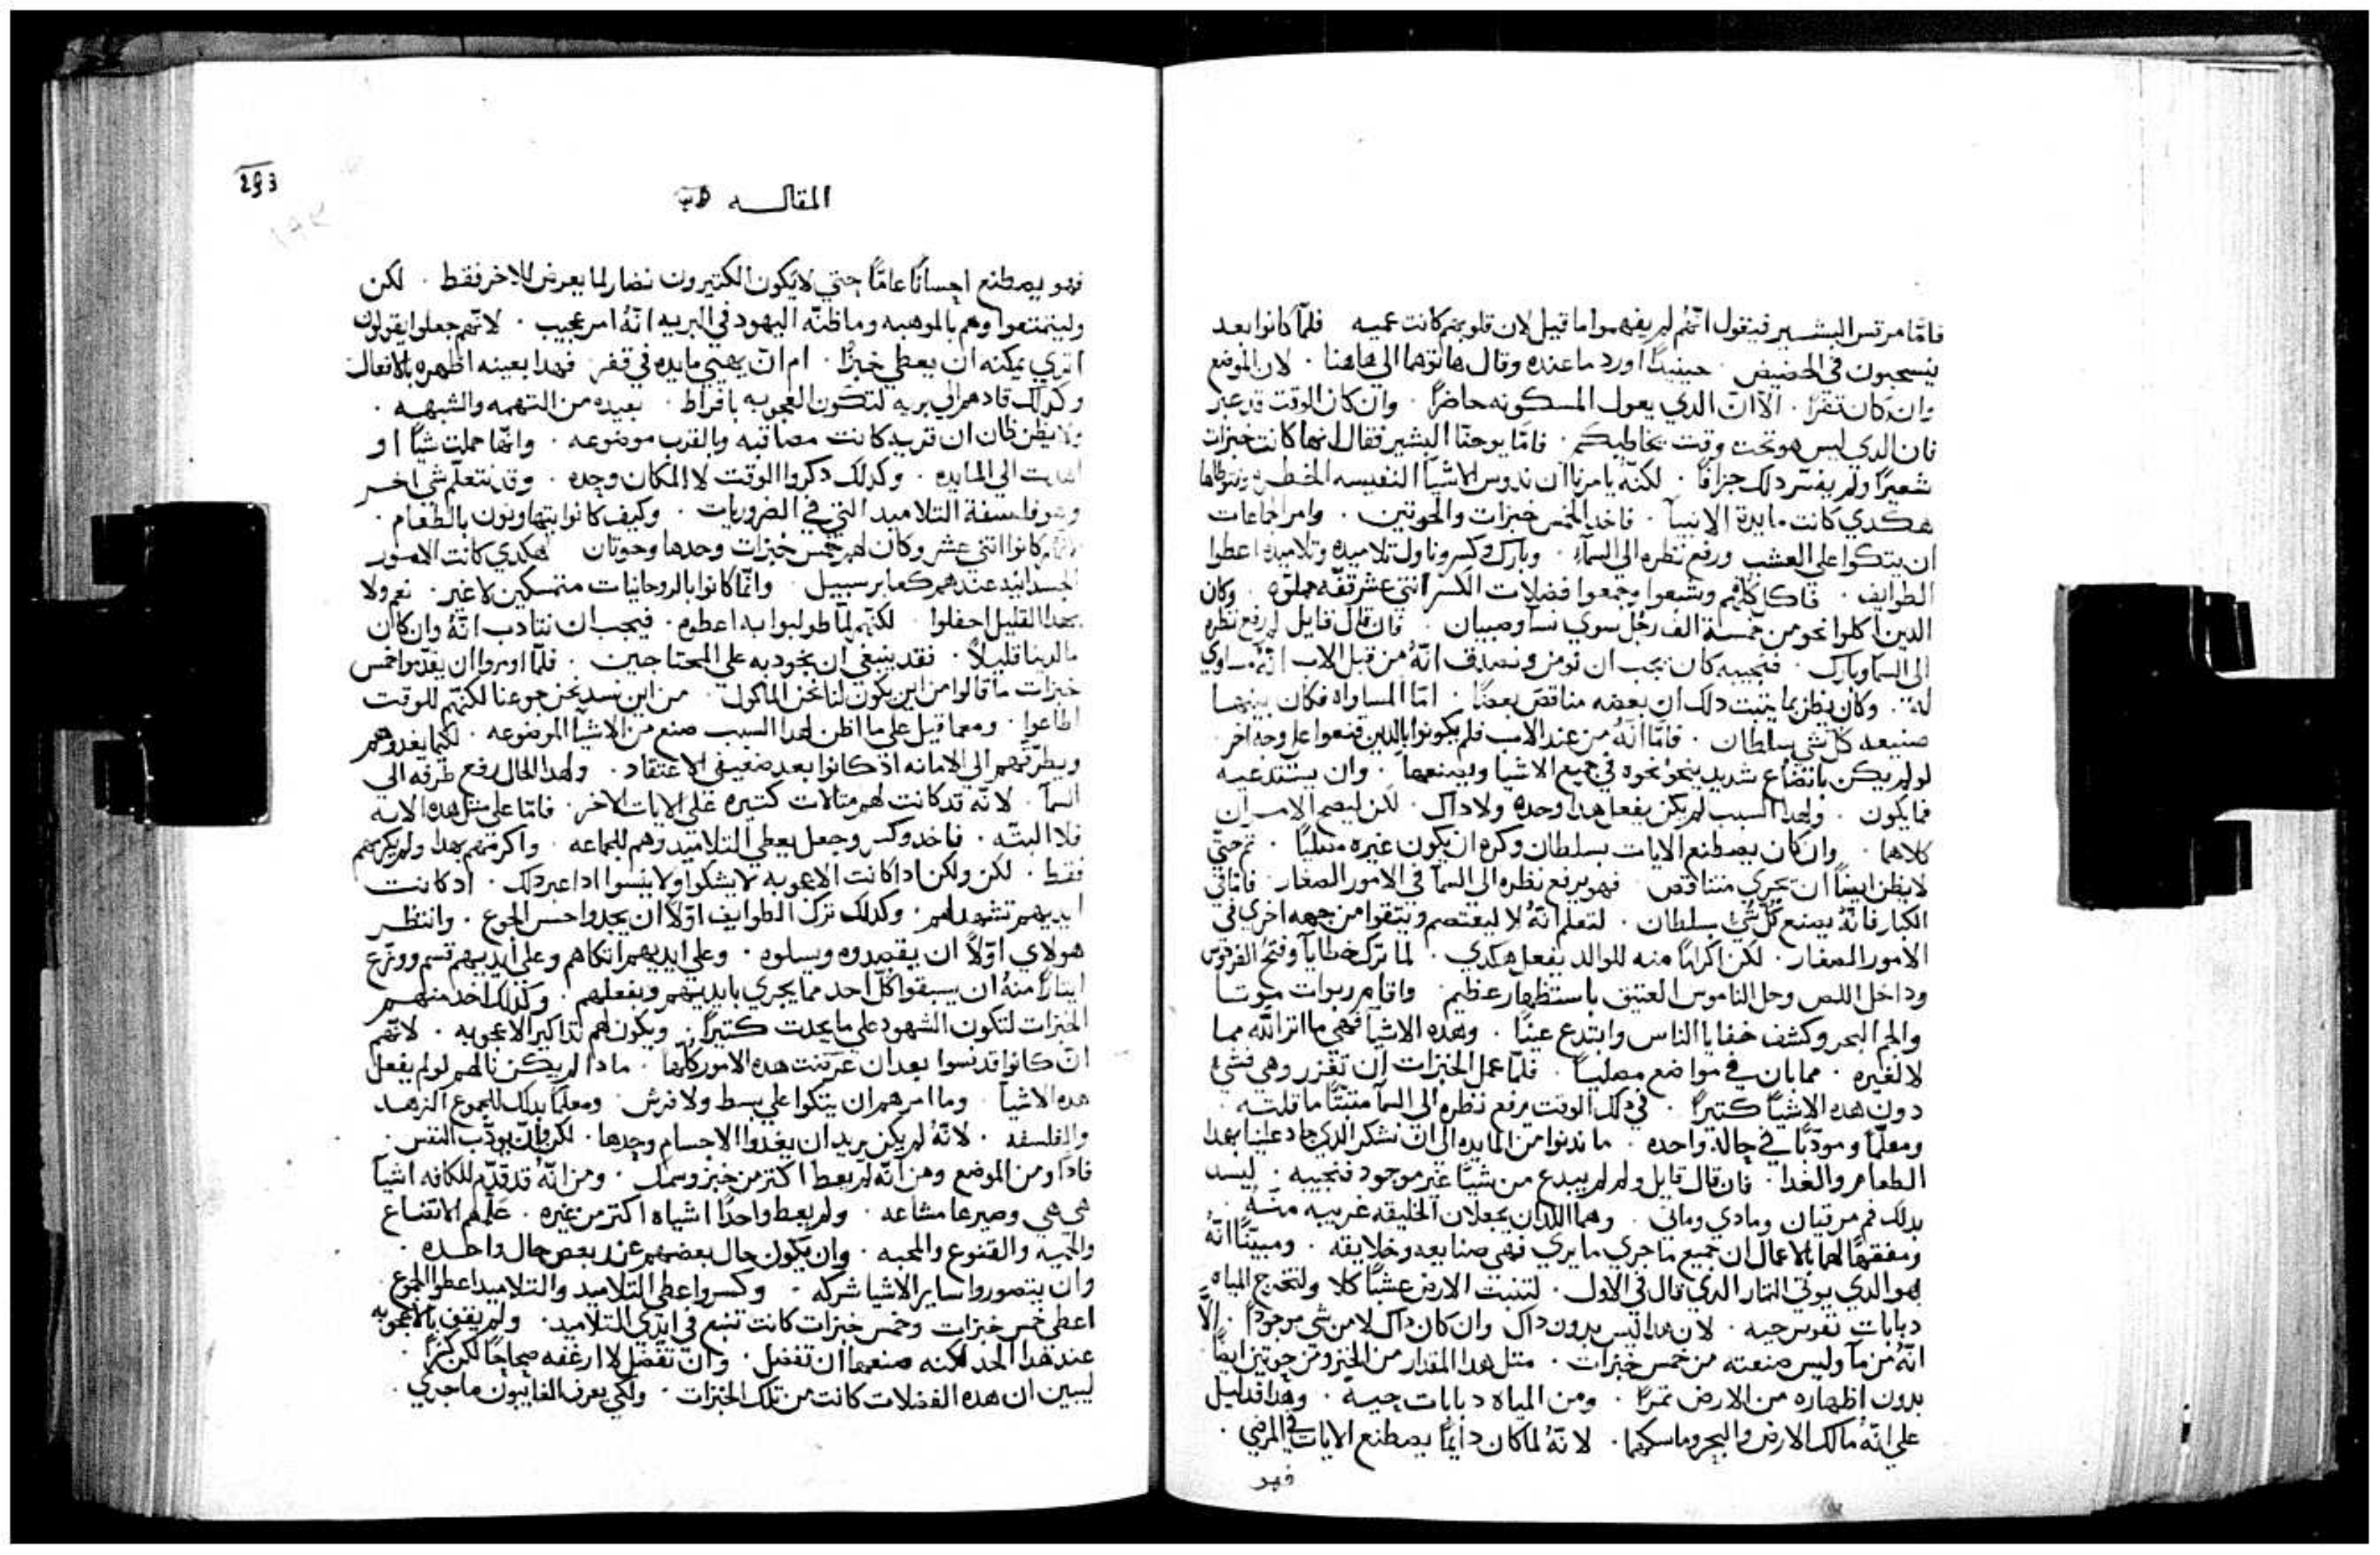 فامّا مرقس البشير فيقول انهم لم يفهموا ما قيل لان قلوبهم كانت عميه فلمّا كانوا بعد
ينسحبون في الحضيض . حينيدًا اورد ما عنده وقال هاتوها الي هاهنا . لان الموضع
وان كان قفرًا . الاان الدي يعول المسكونه حاضرًا . وان كان الوقت قد عبر
فان الدي ليس هو تحت وقت يخاطبكم . فامّا يوحنّا البشير فقال انها كانت خبزات
شعيرًا ولم يفسّر دلك جزافًا . لكنّه يامرنا ان ندوس الاشيآ النفيسه
هكدي كانت مايدة الانبيآ . فاخد الخمس خبزات والحوتين . وامر الجماعات
ان يتكوا علي العشب ورفع نظره الي السمآء . وبارك وكسر وناول تلاميده وتلاميده اعطوا
الطوايف . فاكل كلهم وشبعوا وجمعوا فضلات الكسر اتنتي عشر قفّه مملوّه . وكان
الدين اكلوا نحو من خمسة الف رجُل سوي نسآ وصبيان . فان قال قايل لم رفع نظره
الي السمآ وبارك . فنجيبه كان يجب ان نومن ونصدق انّهُ من قبل الاب انّهُ مساوي
له . وكان يظن بما يتبت دلك ان بعضه مناقض بعضًا . امّا المساواه فكان بينهما
صنيعه كل شي بسلطان . فامّا انّهُ من عند الاب فلم يكونوا بالدين قنعوا علي وجه اخر
لو لم يكن باتضاع شديد ينحو نحوه في جميع الاشيا ويصنعها . وان يستدعيه
فيما يكون . ولهدا السبب لم يكن يفعل هدا وحده ولا داك . لكن ليصح الامران
كلاهما . وان كان يصطنع الايات بسلطان وكره ان يكون غيره مصليًا . تم حتّي
لا يظن ايضًا ان يجري متناقض . فهو يرفع نظره الي السمآ في الامور الصغار . فامّا في
الكبار فانّهُ يصنع كل شي بسلطان . لتعلم انّهُ لا ليعتصم ويتقوا من جهه اخري في
الامور الصغار . لكن اكرامًا منه للوالد يفعل هكدي . لما ترك خطايا وفتح الفردوس
وداخل اللص وحل الناموس العتيق باستظهار عظيم . واقام ربوات موتا
والجم البحر وكشف خفايا الناس وابتدع عينًا . وهده الاشيآ فهي ماآتر اللّه مما
لا لغيره . مما بان في مواضع مصليًا . فلمّا عمل الخبزات ان تغزر وهي فشي
دون هده الاشيآ كتيرًا . في دلك الوقت يرفع نظره الي السمآ متبتًا ما قلته .
ومعلّمًا ومودّبًا في حالة واحده . ما ندنوا من المايده الي ان نشكر الدي جاد علينا بهدا
الطعام والغدا . فان قال قايل ولم لم يبدع من شيًا غير موجود فنجيبه . ليسد
بدلك فم مرقيان ومادي وماني . وهما اللدان يجعلان الخليقه غريبه منه
ومفقهًا لهما بالاعمال ان جميع ما جري ما يري فهي صنايعه وخلايقه . ومبيّنًا انّهُ
هو الدي يوتي التمار الدي قال في الاول . لتنبت الارض عشبًا كلا ولتخرج المياه
دبابات نفوس حيه . لان هدا ليس بدون داك وان كان داك لا من شي موجودًا . الّا
انّهُ من مآ وليس صنعته من خمس خبزات . متل هدا المقدار من الخبز ومن حوتين ايضًا
بدون اظهاره من الارض تمرًا . ومن المياه دبابات حيه . وهدا فدليل
علي انّهُ مالك الارض والبحر وماسكهما . لانّهُ لما كان دايمًا يصطنع الايات في المرضي .
فهو
293
المقاله
فهو يصطنع احسانًا عامًّا حتي لا يكون الكتيرون نضار لما يعرض للاخر فقط . لكن
وليتمتعوا وهم بالموهبه وما ظنّه اليهود في البريه انّهُ امر عجيب . لانّهم جعلوا يقولون
اتري يمكنه ان يعطي خبزًا . ام ان يهيي مايده في قفر . فهدا بعينه اظهره بالافعال
وكدلك قادهم الي بريه لتكون العجوبه بافراط . بعيده من التهمه والشبهه .
ولا يظن ظان ان قريه كانت مصاقبه وبالقرب موضوعه . وانّها حملت شيًا او
اهديت الي المايده . وكدلك دكروا الوقت لا المكان وحده . وقد نتعلّم شي اخر
وهو فلسفة التلاميد التي في الضروريات . وكيف كانوا يتهاونون بالطعام .
كانوا اتني عشر وكان لهم خمس خبزات وحدها وحوتان هكدي كانت الامور
الجسدانيه عندهم كعابر سبيل وانمّا كانوا بالروحانيات متمسكين لا غير . نعم ولا
بهدا القليل احفلوا . لكنّهم لمّا طولبوا به اعطوه . فيجب ان نتادب انّهُ وان كان
مالدينا قليلاً . فقد ينبغي ان نجود به علي المحتاجين . فلمّا اومروا ان يقدّموا خمس
خبزات ما قالوا من اين يكون لنا نحن الماكول . من اين نسد نحن جوعنا لكنّهم للوقت
اطاعوا . ومعما قيل علي ما اظن لهدا السبب صنع من الاشيآ الموضوعه . لكيما يغدوهم
ويطرّقهم الي الامانه اد كانوا بعد ضعيفي الاعتقاد . ولهدا الحال رفع طرفه الي
السمآ . لانّه قد كانت لهم متالات كتيره علي الايات الاخر . فامّا علي متل هده الايه
فلا البتّه . فاخد وكسر وجعل يعطي التلاميد وهم للجماعه . واكرمهم بهدا ولم يكرمهم
فقط . لكن ولكن ادا كانت الاعجوبه لا يشكوا ولا ينسوا ادا عبر دلك . اد كانت
ايديهم تشهد لهم . وكدلك ترك الطوايف اوّلًا ان يجدوا حس الجوع . وانتظر
هولاي اوّلًا ان يقصدوه ويسلوه . وعلي ايديهم اتكاهم وعلي ايديهم قسم ووزّع
ايتارًا منهُ ان يسبقوا كل احد مما يجري بايديهم وبفعلهم . وكدلك اخد منهم
الخبزات لتكون الشهود علي ما يحدت كتيرًا . ويكون لهم تداكير الاعجوبه . لانّهم
ان كانوا قد نسوا بعد ان عرضت هده الامور كلها . مادا لم يكن نالهم لو لم يفعل
هده الاشيآ . وما امرهم ان يتكوا علي بسط ولا فرش . ومعلمًا بدلك للجموع الزهد
والفلسفه . لانّهُ لم يكن يريد ان يغدوا الاجسام وحدها . لكن وان يودّب النفس .
فادًا ومن الموضع ومن انّه لم يعط اكتر من خبز وسمك . ومن انّه قد قدّم للكافه اشيآ
هي هي وصيرها مشاعه . ولم يعط واحدًا اشياه اكتر من غيره . علّمهم الاتضاع
والحميه والقنوع والمحبه . وان يكون حال بعضهم عند بعض حال واحده .
وان يتصوروا ساير الاشيا شركه . وكسر واعطي التلاميد والتلاميد اعطوا الجموع
اعطي خمس خبزات وخمس خبزات كانت تنبع في ايدي التلاميد . ولم يقف بالاعجوبه
عند هدا الحد لكنه صنعها ان تفضل . وان تفضل لا ارغفه صحاحًا لكن كسرًا .
ليبين ان هده الفضلات كانت من تلك الخبزات . ولكي يعرف الغايبون ما جري .